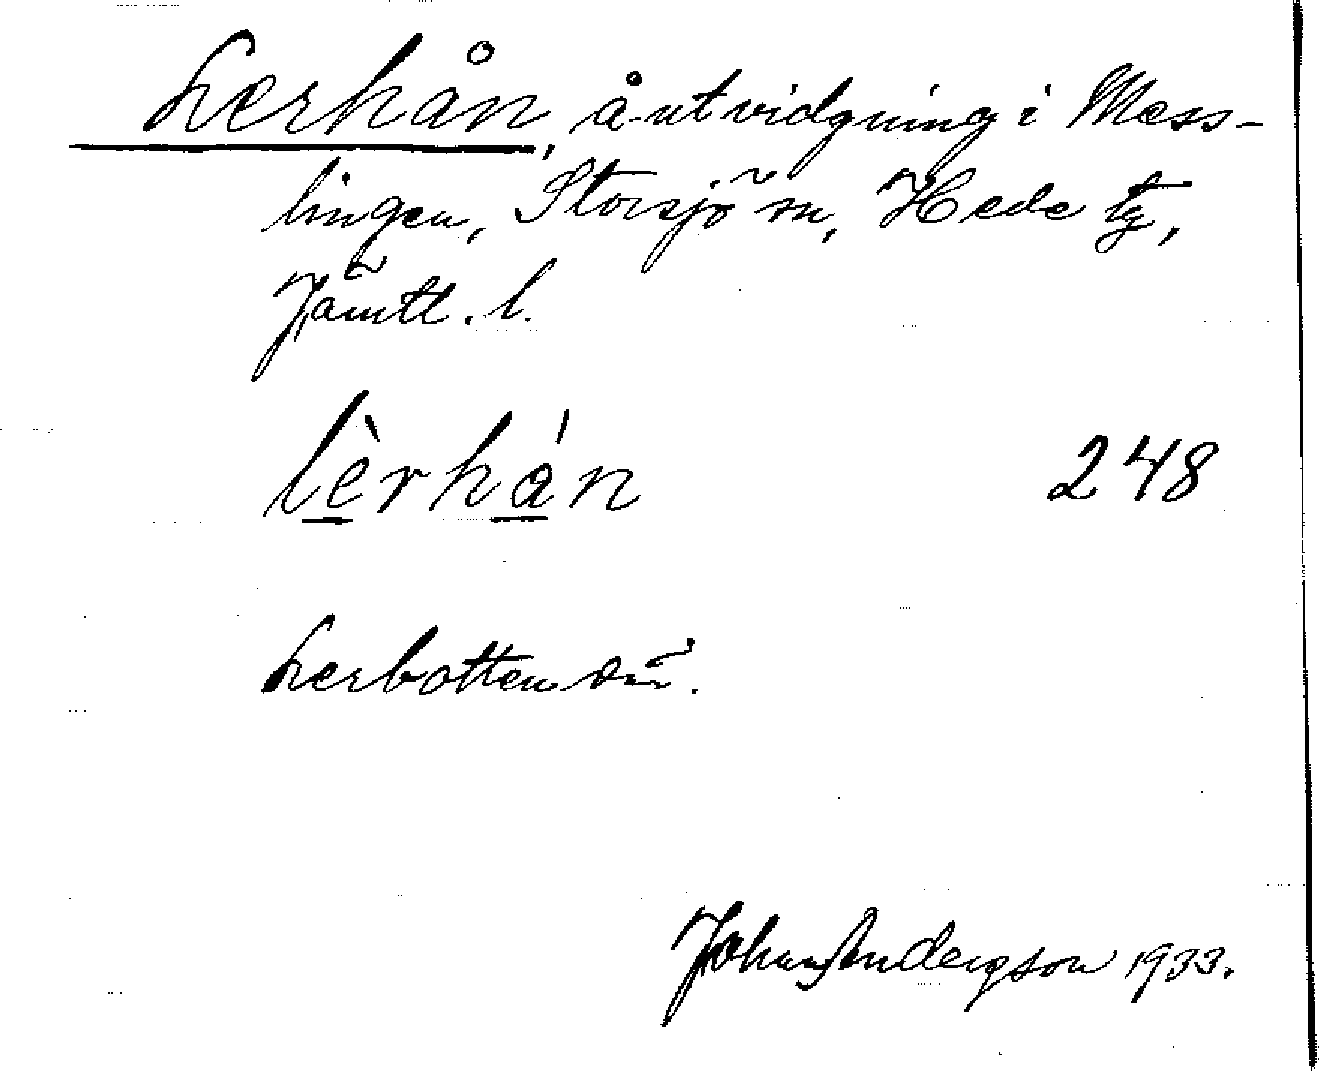 Lerhån, å-utvidgning i Mess-
lingen, Storsjö sn, Hede tg,
Jämtl. l.
lèrhán 248
Lerbotten
Johan Andergson 1933.